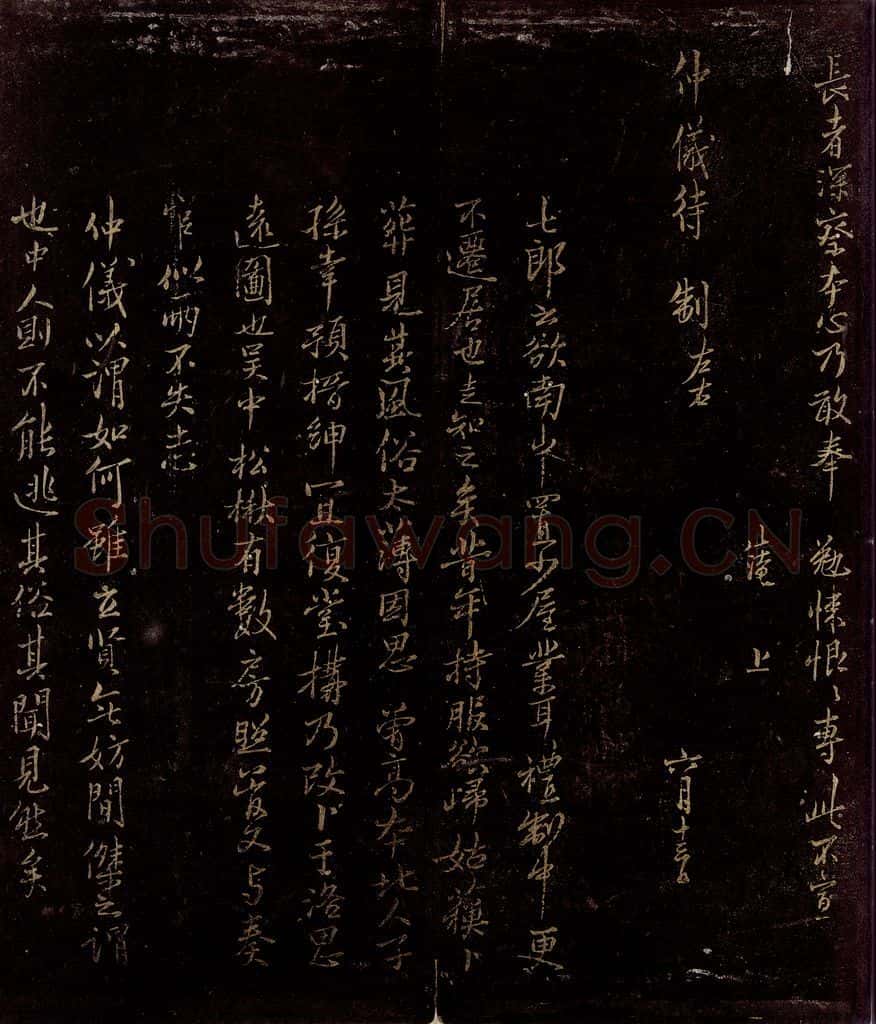 長者深察本心乃敢奉 勉悚恨〻專此不宣
淹 上
仲儀待制左右 六月十三日
七郎云欲南中置少屋業耳禮制中更
不遷居也走知之矣昔年持服欲歸姑蘇卜
葬見其風俗太薄因思曾高本北人子
孫幸預搢紳宜復堂構乃改卜于洛思
遠圖也吳中松楸有數房照管又与奏
官似兩不失志
仲儀以謂如何雖立賢無妨閒傑之謂
也中人則不能逃其俗其聞見然矣
Shufawang.CN